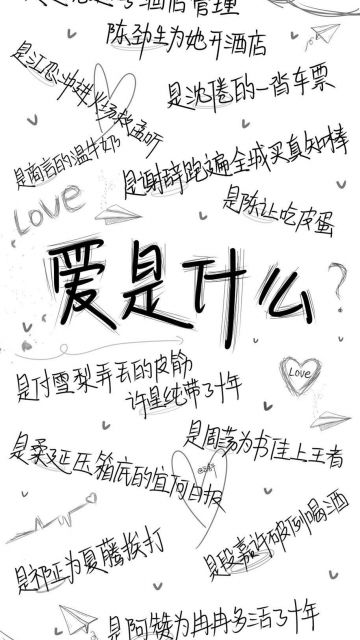 酒店管理
陈劲生为她开酒店
是江忍冲进火场救孟听
是沈倦的一沓车票
是商言的温牛奶
是谢辞跑遍全城买真知棒
是陈让吃皮蛋
Love
爱是什么?
是付雪梨弄丢的皮筋
许星纯带了十年
Love
是周荡为书佳上王者
是柔延压箱底的宜阿日报
是祁正为夏藤挨打
是段嘉许破例喝酒
是阿赞为冉冉多活了十年